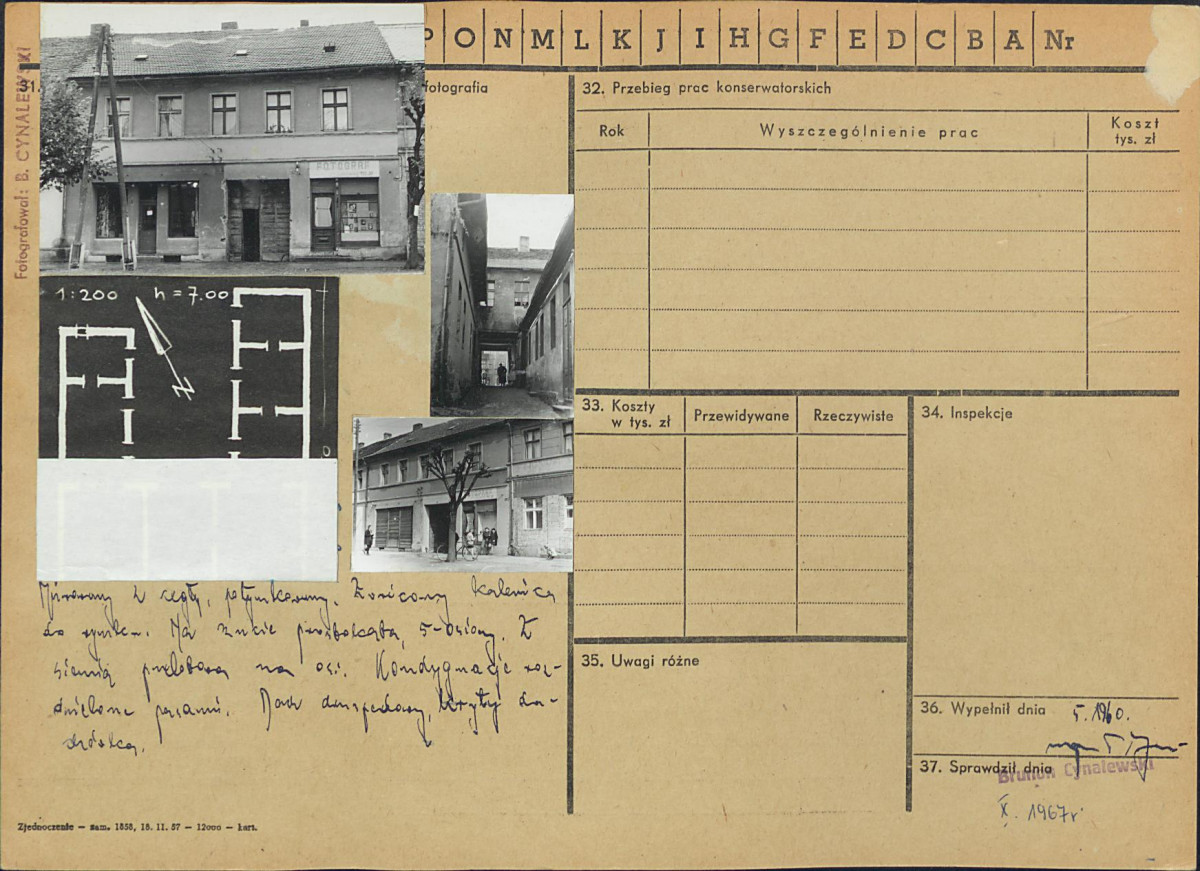 O N M L K J I H G F E D C B A Nr
31.
fotografia
Fotografował: B. CYNALEWSKI
FOTOGRAF
1:200 h=7.00
N
32. Przebieg prac konserwatorskich
Rok Wyszczególnienie prac Koszt
tys. zł
33. Koszty
w tys. zł
Przewidywane Rzeczywiste
34. Inspekcje
35. Uwagi różne
36. Wypełnił dnia 5.1960.
37. Sprawdził dnia
Brunon Cynalewski
X. 1967r
Murowany z cegły, potynkowany. Zwrócony kalenicą
do rynku. Na rzucie prostokąta, 5-osiowy. Z
sienią przelotową na osi. Kondygnacje roz-
dzielone pasami. Dach dwuspadowy, kryty da-
chówką.
Zjednoczenie — zam. 1858, 18. 11. 57 — 12000 — kart.